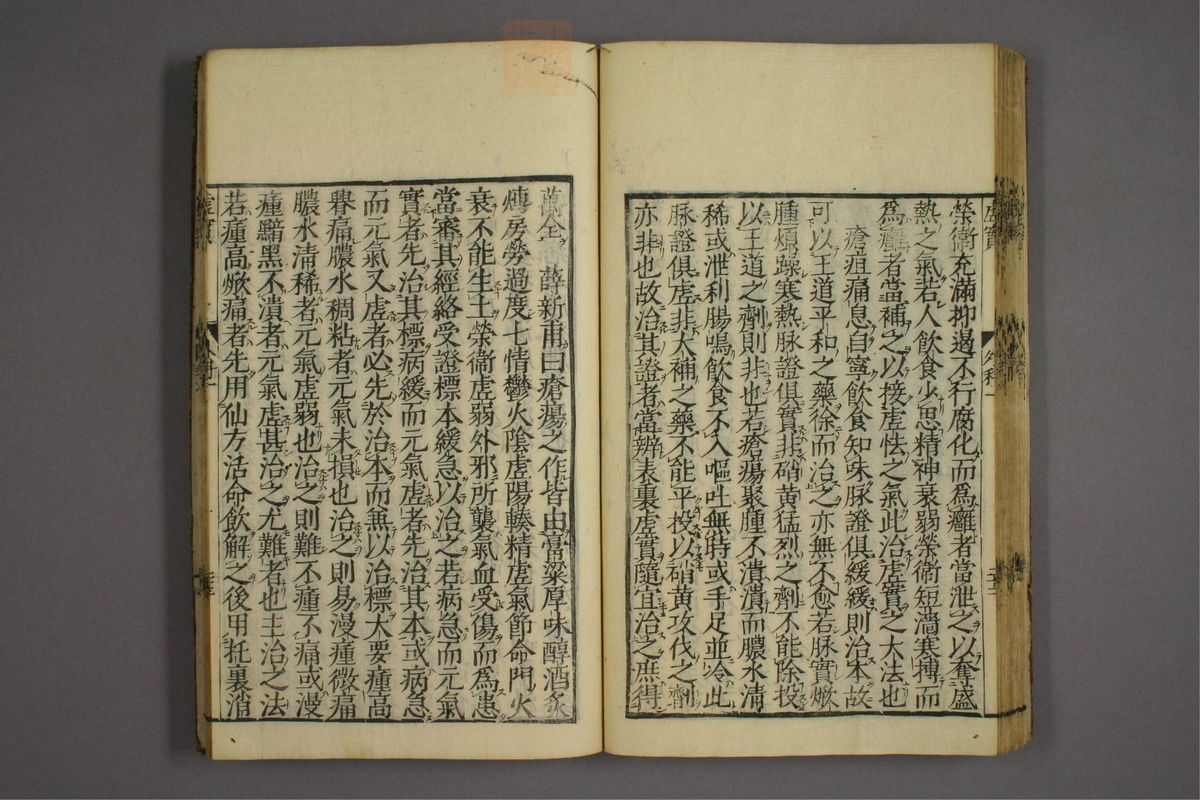 榮衛充滿抑遏不行腐化而爲癰者當泄之以奪盛
熱之氣若人飲食少思精神衰弱榮衛短濇寒搏而
爲癰者當補之以接虛怯之氣此治虛實之大法也
瘡疽痛息自寧飲食知味脉證俱緩緩則治本故
可以王道平和之藥徐而治之亦無不愈若脉實焮
腫煩躁寒熱脉證俱實非硝黃猛烈之劑不能除投
以王道之劑則非也若瘡瘍聚腫不潰潰而膿水清
稀或泄利腸鳴飲食不入嘔吐無時或手足並冷此
脉證俱虛非大補之藥不能平投以硝黃攻伐之劑
亦非也故治其證者當辨表裏虛實隨宜治之庶得
萬全 薛新甫曰瘡瘍之作皆由膏粱厚味醇酒炙
煿房勞過度七情鬱火陰虛陽輳精虛氣節命門火
衰不能生土榮衛虛弱外邪所襲氣血受傷而爲患
當審其經絡受證標本緩急以治之若病急而元氣
實者先治其標病緩而元氣虛者先治其本或病急
而元氣又虛者必先於治本而無以治標大要瘇高
焮痛膿水稠粘者元氣未損也治之則易漫瘇微痛
膿水清稀者元氣虛弱也治之則難不瘇不痛或漫
瘇黯黑不潰者元氣虛甚治之尤難者也主治之法
若瘇高焮痛者先用仙方活命飲解之後用托裏消